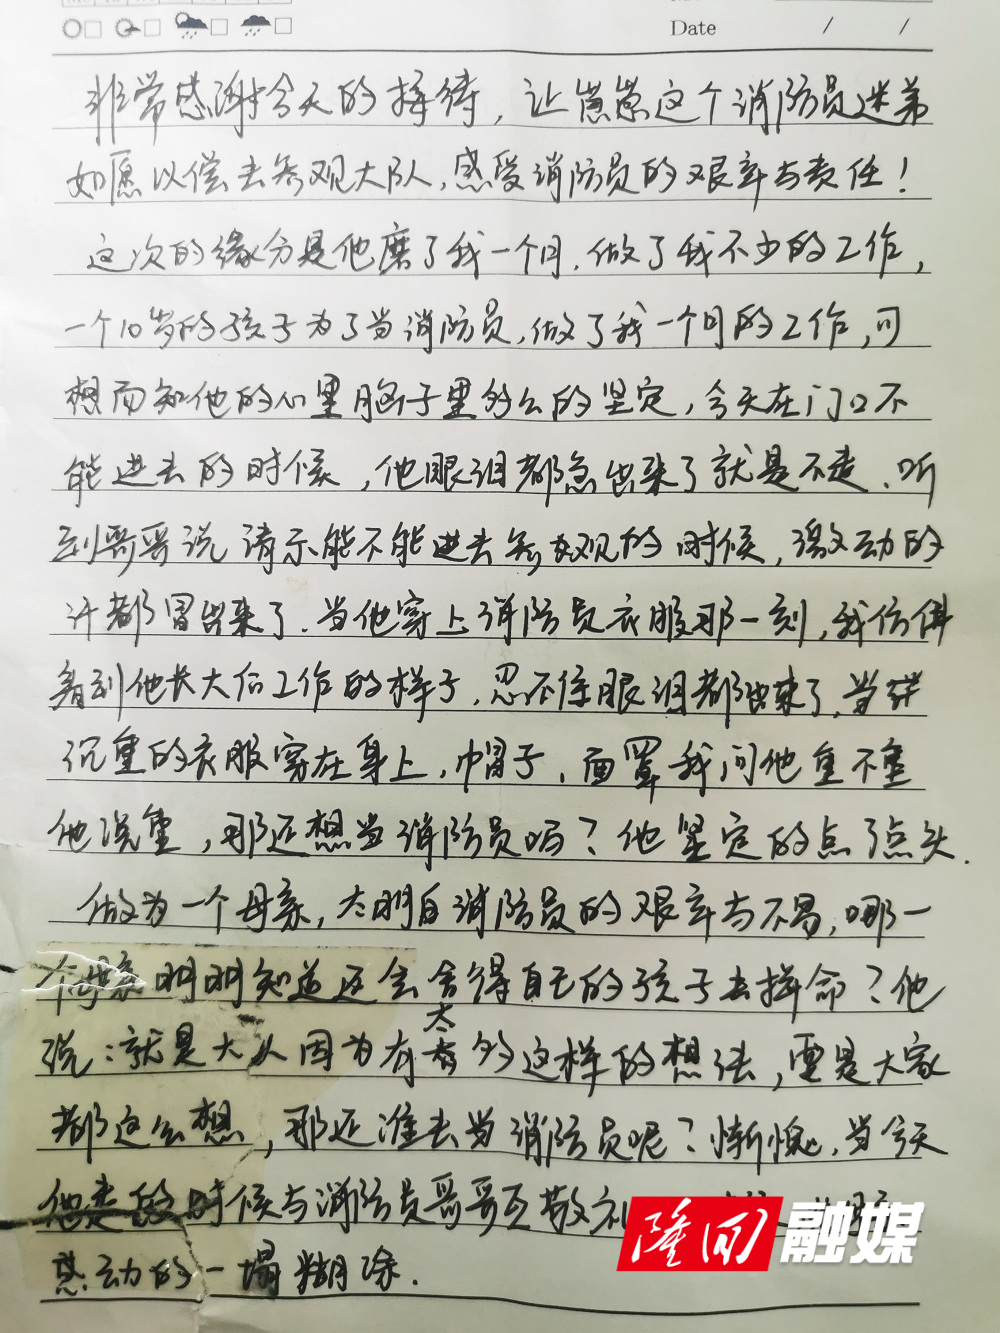 Date / /
非常感谢今天的接待，让崽崽这个消防员迷弟
如愿以偿去参观大队，感受消防员的艰辛与责任！
这次的缘分是他磨了我一个月，做了我不少的工作，
一个10岁的孩子为了当消防员，做了我一个月的工作，可
想而知他的心里脑子里多么的坚定，今天在门口不
能进去的时候，他眼泪都急出来了就是不走、听
到哥哥说请示能不能进去参观的时候，激动的
汗都冒出来了．当他穿上消防员衣服那一刻，我仿佛
看到他长大后工作的样子，忍不住眼泪都出来了，当
沉重的衣服穿在身上，帽子，面罩我问他重不重
他说重，那还想当消防员吗？他坚定的点了点头．
做为一个母亲，太明白消防员的艰辛与不易，哪一
个母亲明明知道还会舍得自己的孩子去拼命？他
说：就是大人因为有太多这样的想法，要是大家
都这么想，那还谁去当消防员呢？惭愧，当今天
他走的时候与消防员哥哥互敬礼
感动的一塌糊涂．
隆回 融媒